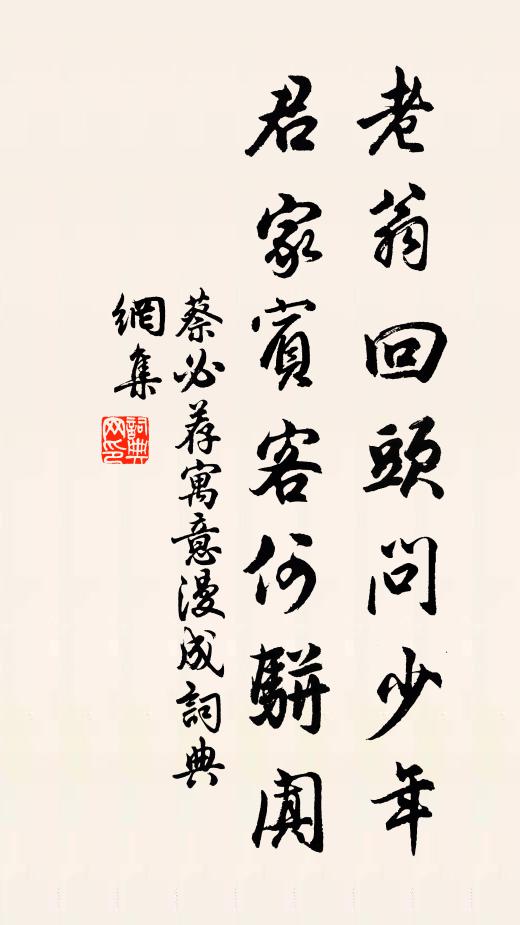 老翁回頭問少年
君家賓客何駢闐
蔡必荐寓意漫成詞典
網集
詞典
网印